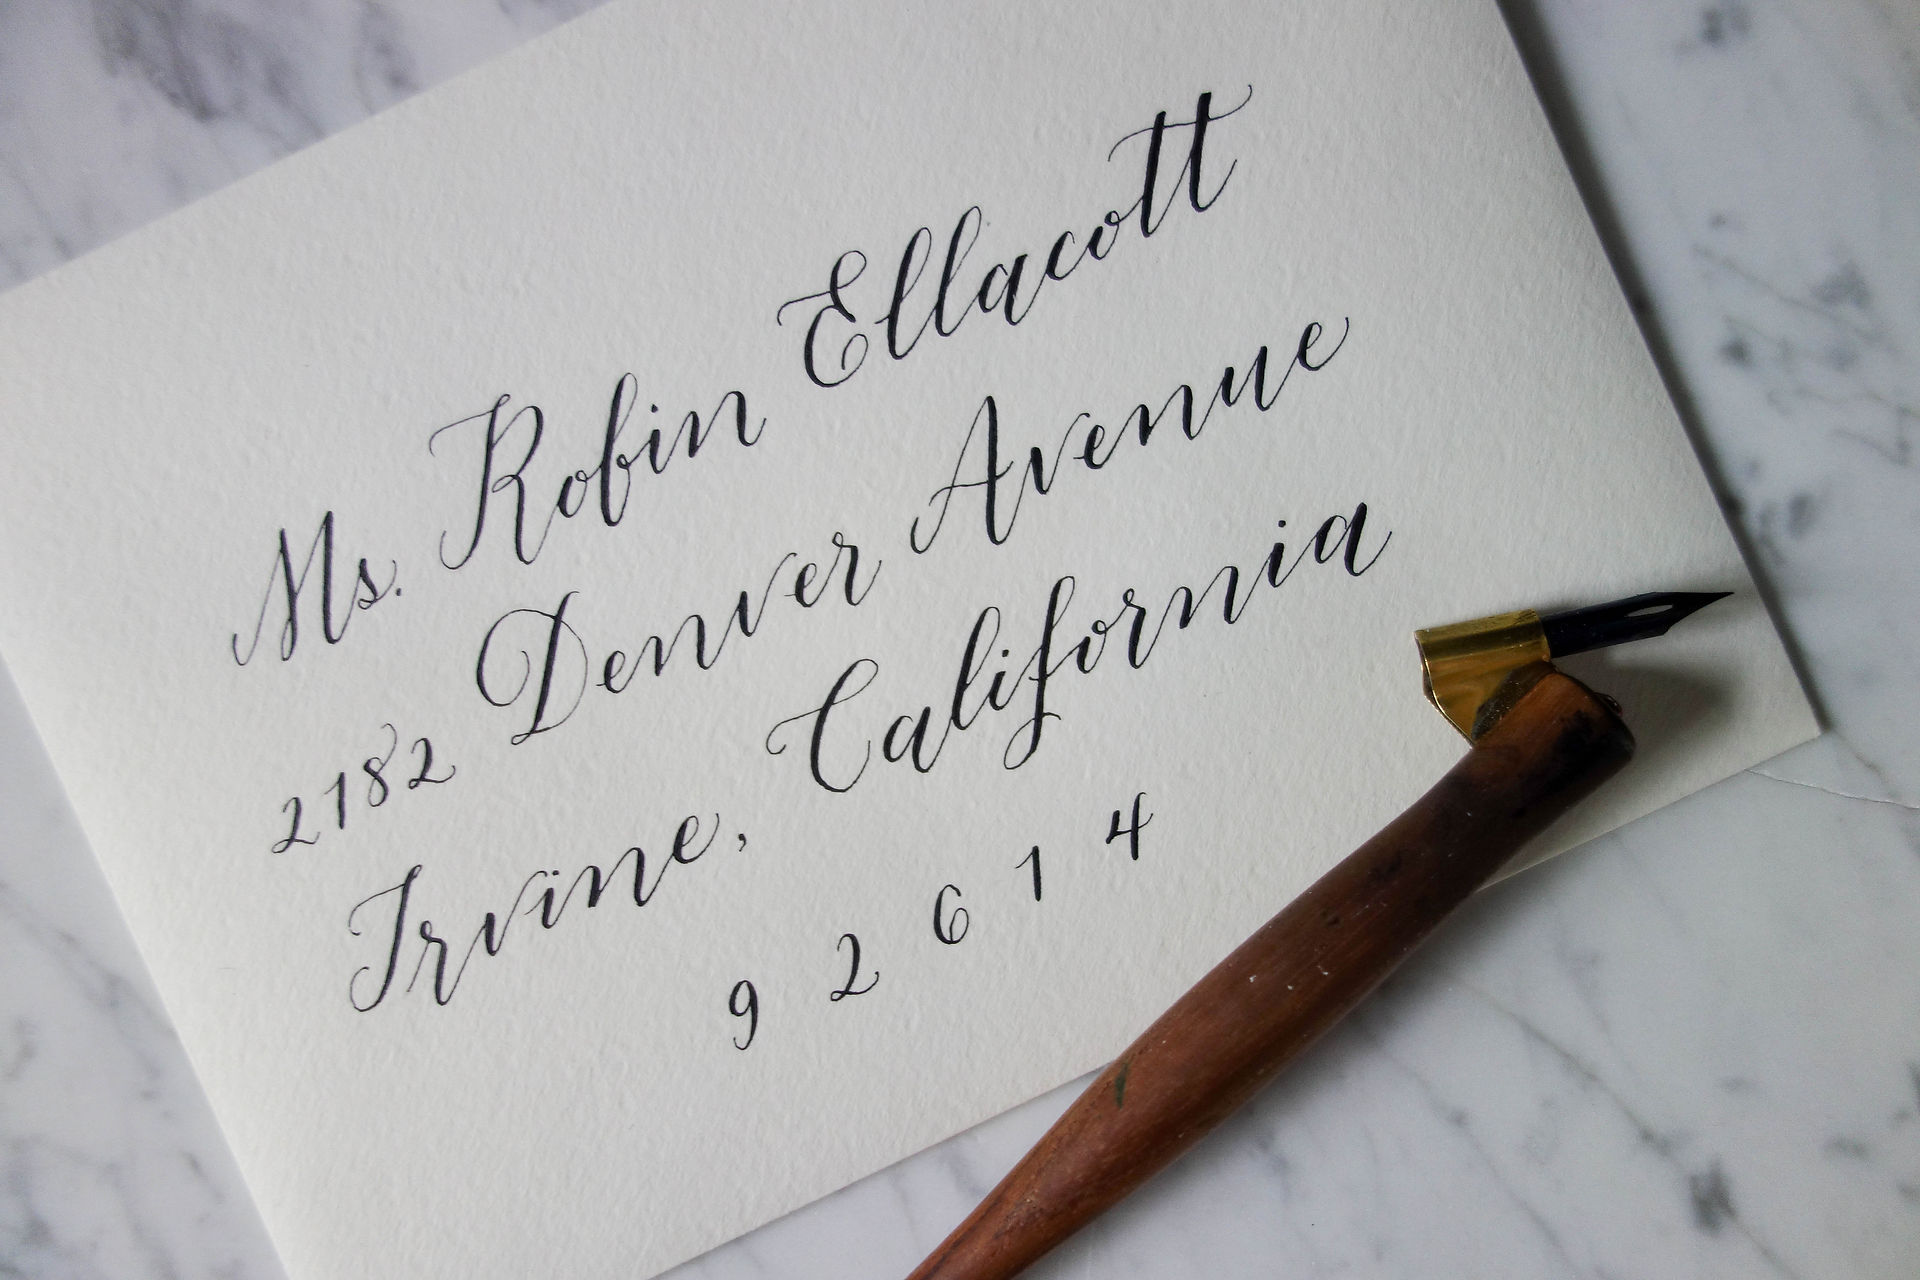 Ms. Robin Ellacott
2182 Denver Avenue
Irvine, California
9 2 6 1 4